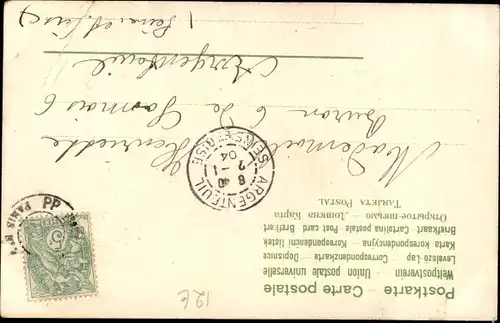 Postkarte - Carte postale
Weltpostverein - Union postale universelle
Levelező-Lap - Correspondenzkarte - Dopisnice
Karta korespondencyjna - Korespondenční lístek
Briefkaart - Cartolina postale - Post card - Brefkort
Открытое письмо - Дописна Карта
TARJETA POSTAL
Henriette
Buron 6 de
Argenteuil
(Seine et Oise)
ARGENTEUIL
6 40
2 - 1
04
SEINE-ET-OISE
PARIS
PP
5
12€